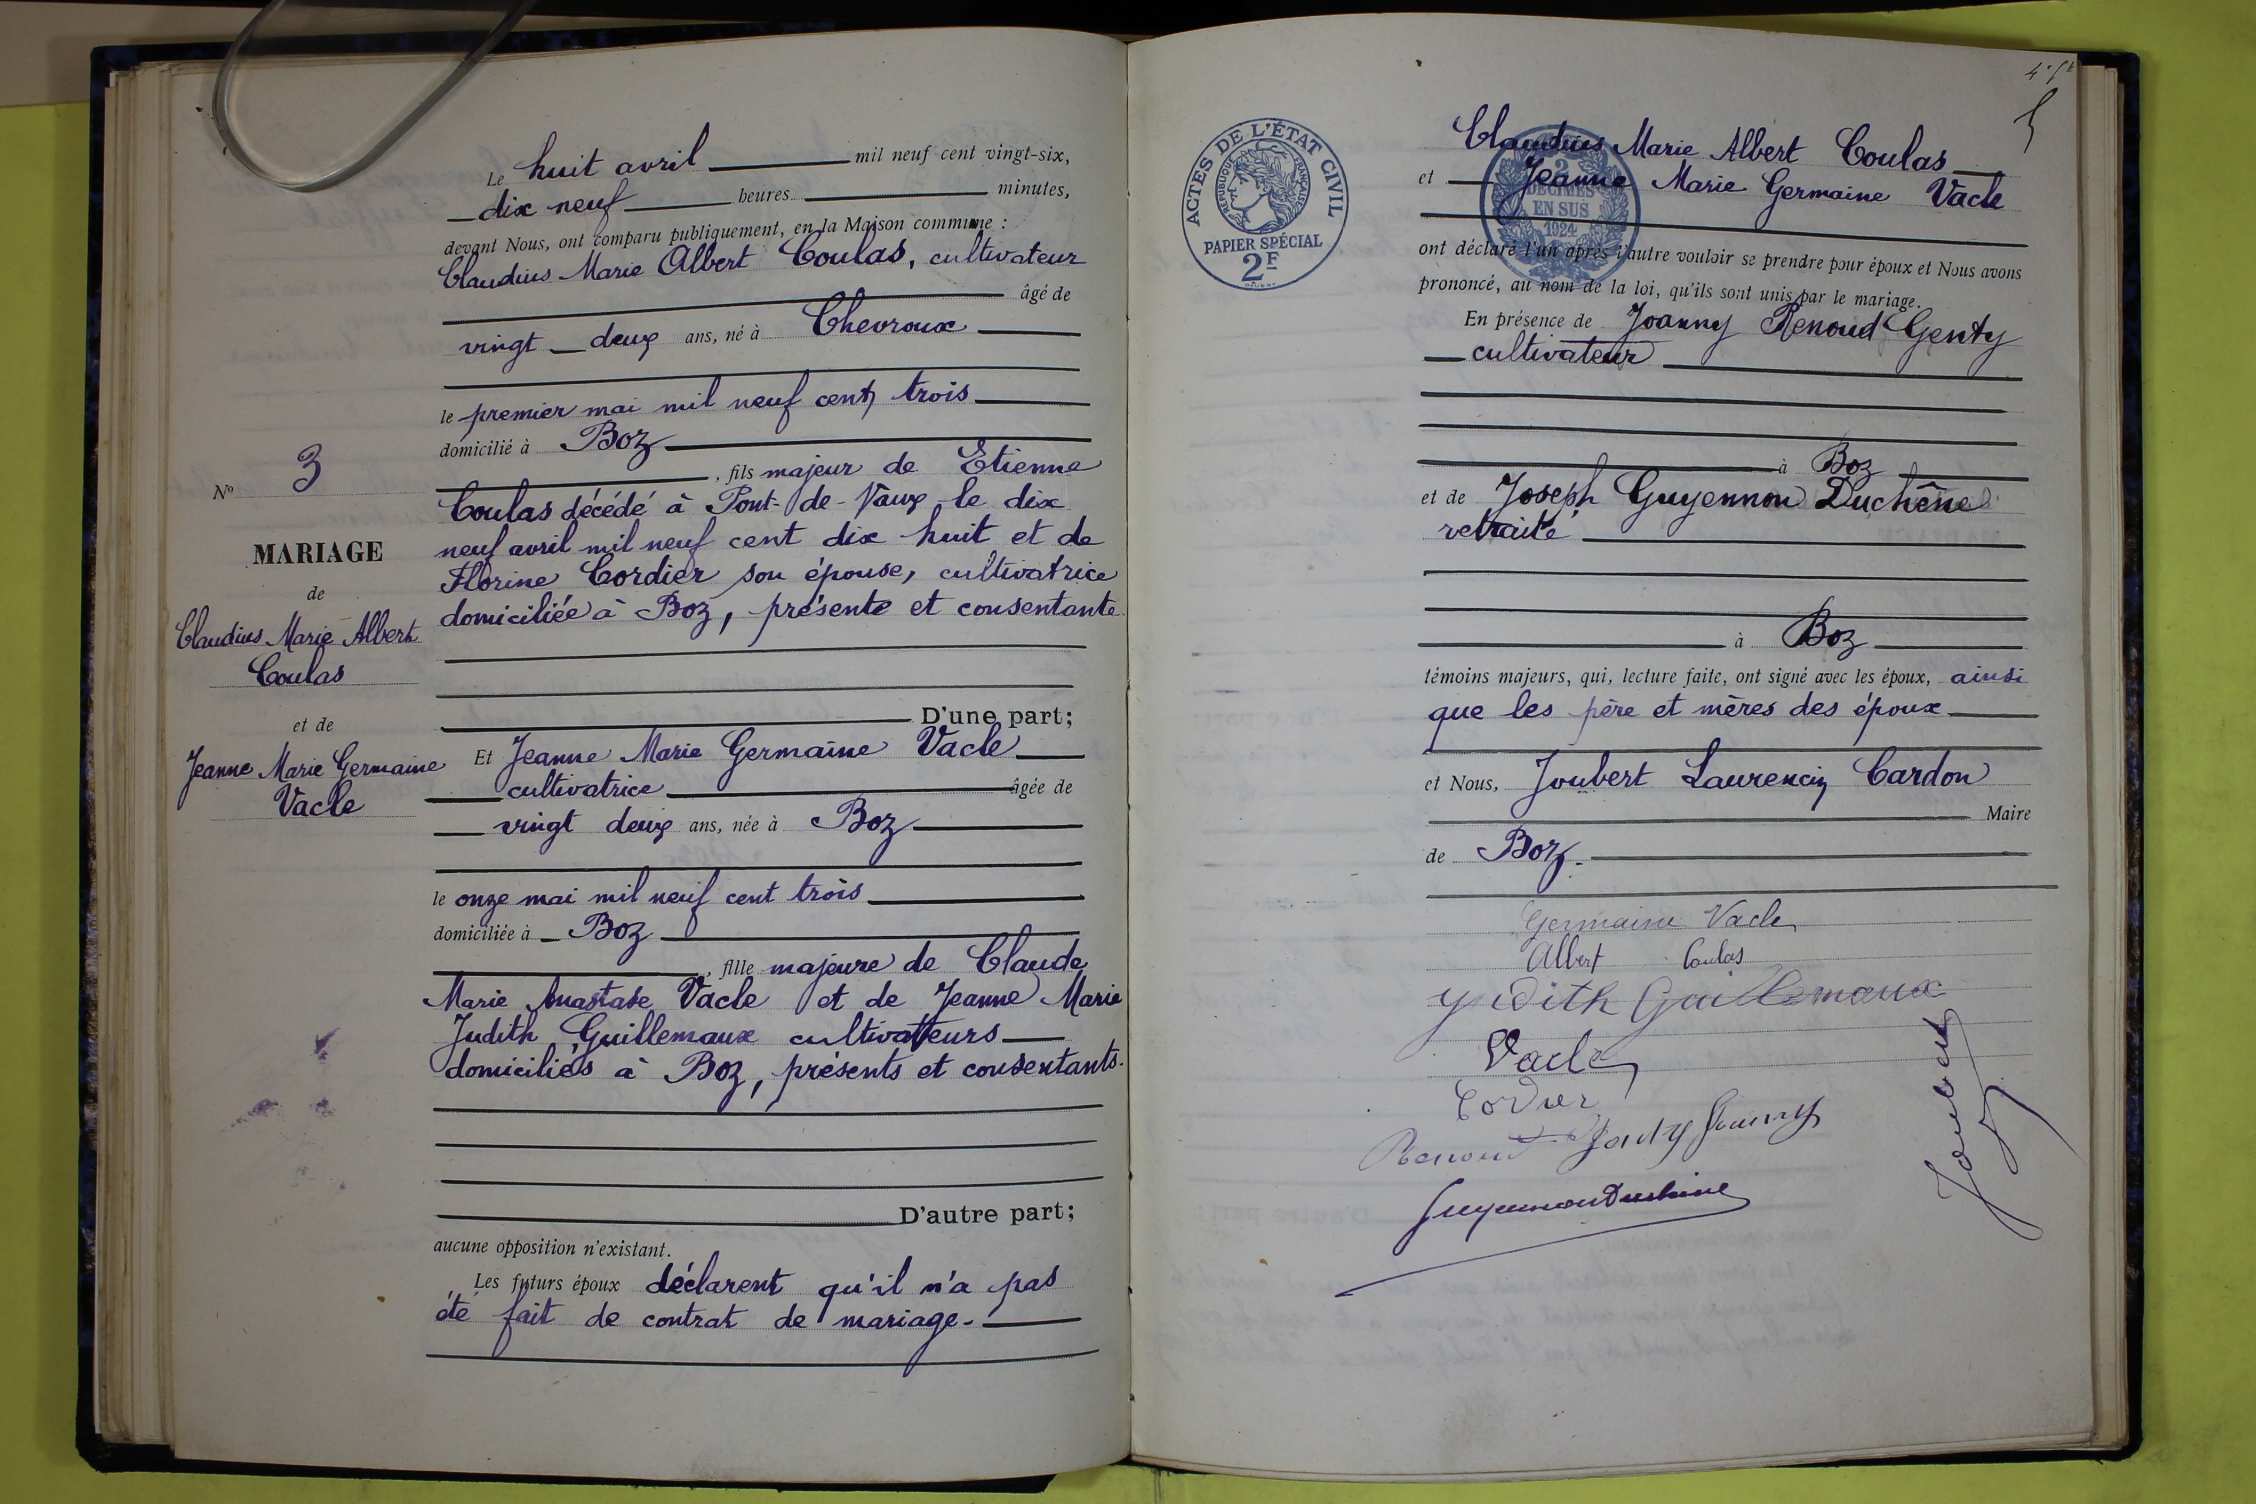 Le huit avril mil neuf cent vingt-six,
dix neuf heures minutes,
devant Nous, ont comparu publiquement, en la Maison commune :
Claudius Marie Albert Coulas, cultivateur
âgé de
vingt deux ans, né à Chevroux
le premier mai mil neuf cent trois
domicilié à Boz
, fils majeur de Etienne
Coulas décédé à Pont-de-Vaux le dix
neuf avril mil neuf cent dix huit et de
Florine Cordier son épouse, cultivatrice
domiciliée à Boz, présente et consentante
D'une part;
Et Jeanne Marie Germaine Vacle
cultivatrice âgée de
vingt deux ans, née à Boz
le onze mai mil neuf cent trois
domiciliée à Boz
, fille majeure de Claude
Marie Anastase Vacle et de Jeanne Marie
Judith Guillemaux cultivatteurs
domiciliés à Boz, présents et consentants.
D'autre part;
aucune opposition n'existant.
Les futurs époux déclarent qu'il n'a pas
été fait de contrat de mariage.
No 3
MARIAGE
de
Claudius Marie Albert
Coulas
et de
Jeanne Marie Germaine
Vacle
ACTES DE L'ÉTAT CIVIL
RÉPUBLIQUE FRANÇAISE
PAPIER SPÉCIAL
2F
2
DÉCIMES
EN SUS
1924
5
Claudius Marie Albert Coulas
et Jeanne Marie Germaine Vacle
ont déclaré l'un après l'autre vouloir se prendre pour époux et Nous avons
prononcé, au nom de la loi, qu'ils sont unis par le mariage.
En présence de Joanny Renoud Genty
cultivateur
à Boz
et de Joseph Guyennon Duchêne
retraité
à Boz
témoins majeurs, qui, lecture faite, ont signé avec les époux, ainsi
que les père et mères des époux
et Nous, Joubert Laurencin Cardon
Maire
de Boz.
Germaine Vacle
Albert Coulas
Judith Guillemaux
Vacle
Cordier
Renoud Genty Joanny
Guyennon Duchêne
Joubert